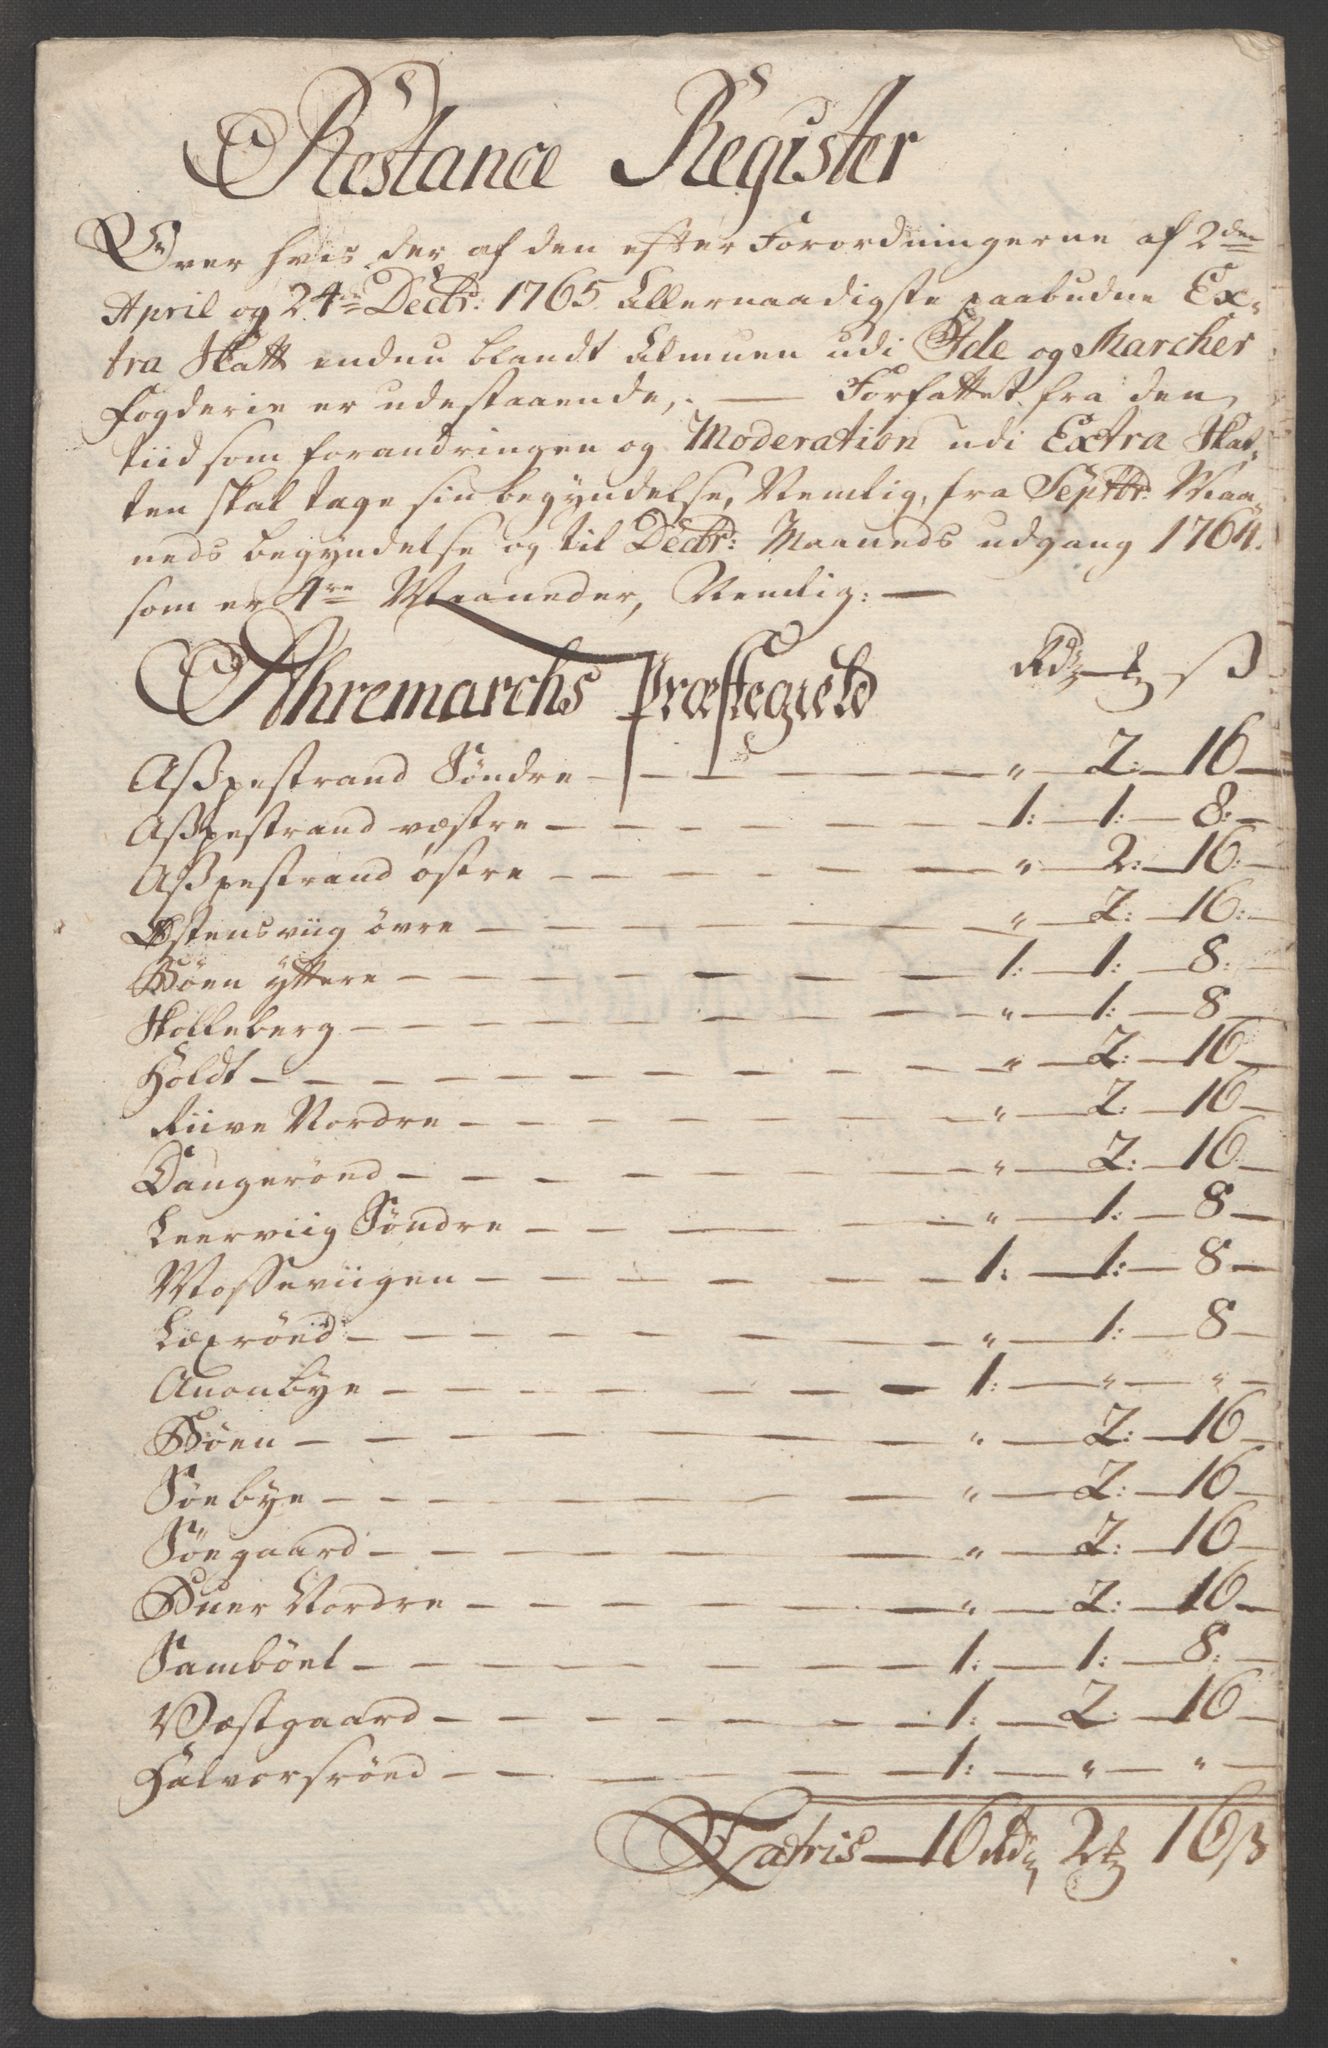 Restance Register
Over hvis der af den efter Forordningerne af 2den
April og 24de Decbr: 1765 Allernaadigste paabudne Ex-
tra Skatt endnu blandt Almuen udi Ide og Marcher
Fogderie er udestaaende, — Forfattet fra den
tiid som forandringen og Moderation udi Extra Skat-
ten skal tage sin begyndelse, Nemlig, fra Septbr: Maa-
neds begyndelse og til Decbr: Maaneds udgang 1764.
som er 4re Maaneder, Nemlig: —
Ahremarchs Præstegield Rdr ß
Aßpestrand Søndre — " 2: 16
Aßpestrand væstre — 1: 1: 8:
Aßpestrand østre — " 2: 16:
Østensviig øvre — " 2: 16:
Bøen yttere — 1: 1: 8:
Skolleberg — " 1: 8
Holdt — " 2: 16
Riive Nordre — " 2: 16
Daugerønd — " 2: 16
Leerviig Søndre — " 1: 8
Mosseviigen — 1: 1: 8
Læxrønd — " 1: 8
Anonbye — 1: " "
Bøen — " 2: 16
Søebye — " 2: 16
Søegaard — " 2: 16
Buer Nordre — " 2: 16
Sambøel — 1: 1: 8:
Væstgaard — 1: 2: 16
Halvorsrønd — 1: " "
Latris — 16 Rdr 2 16 ß